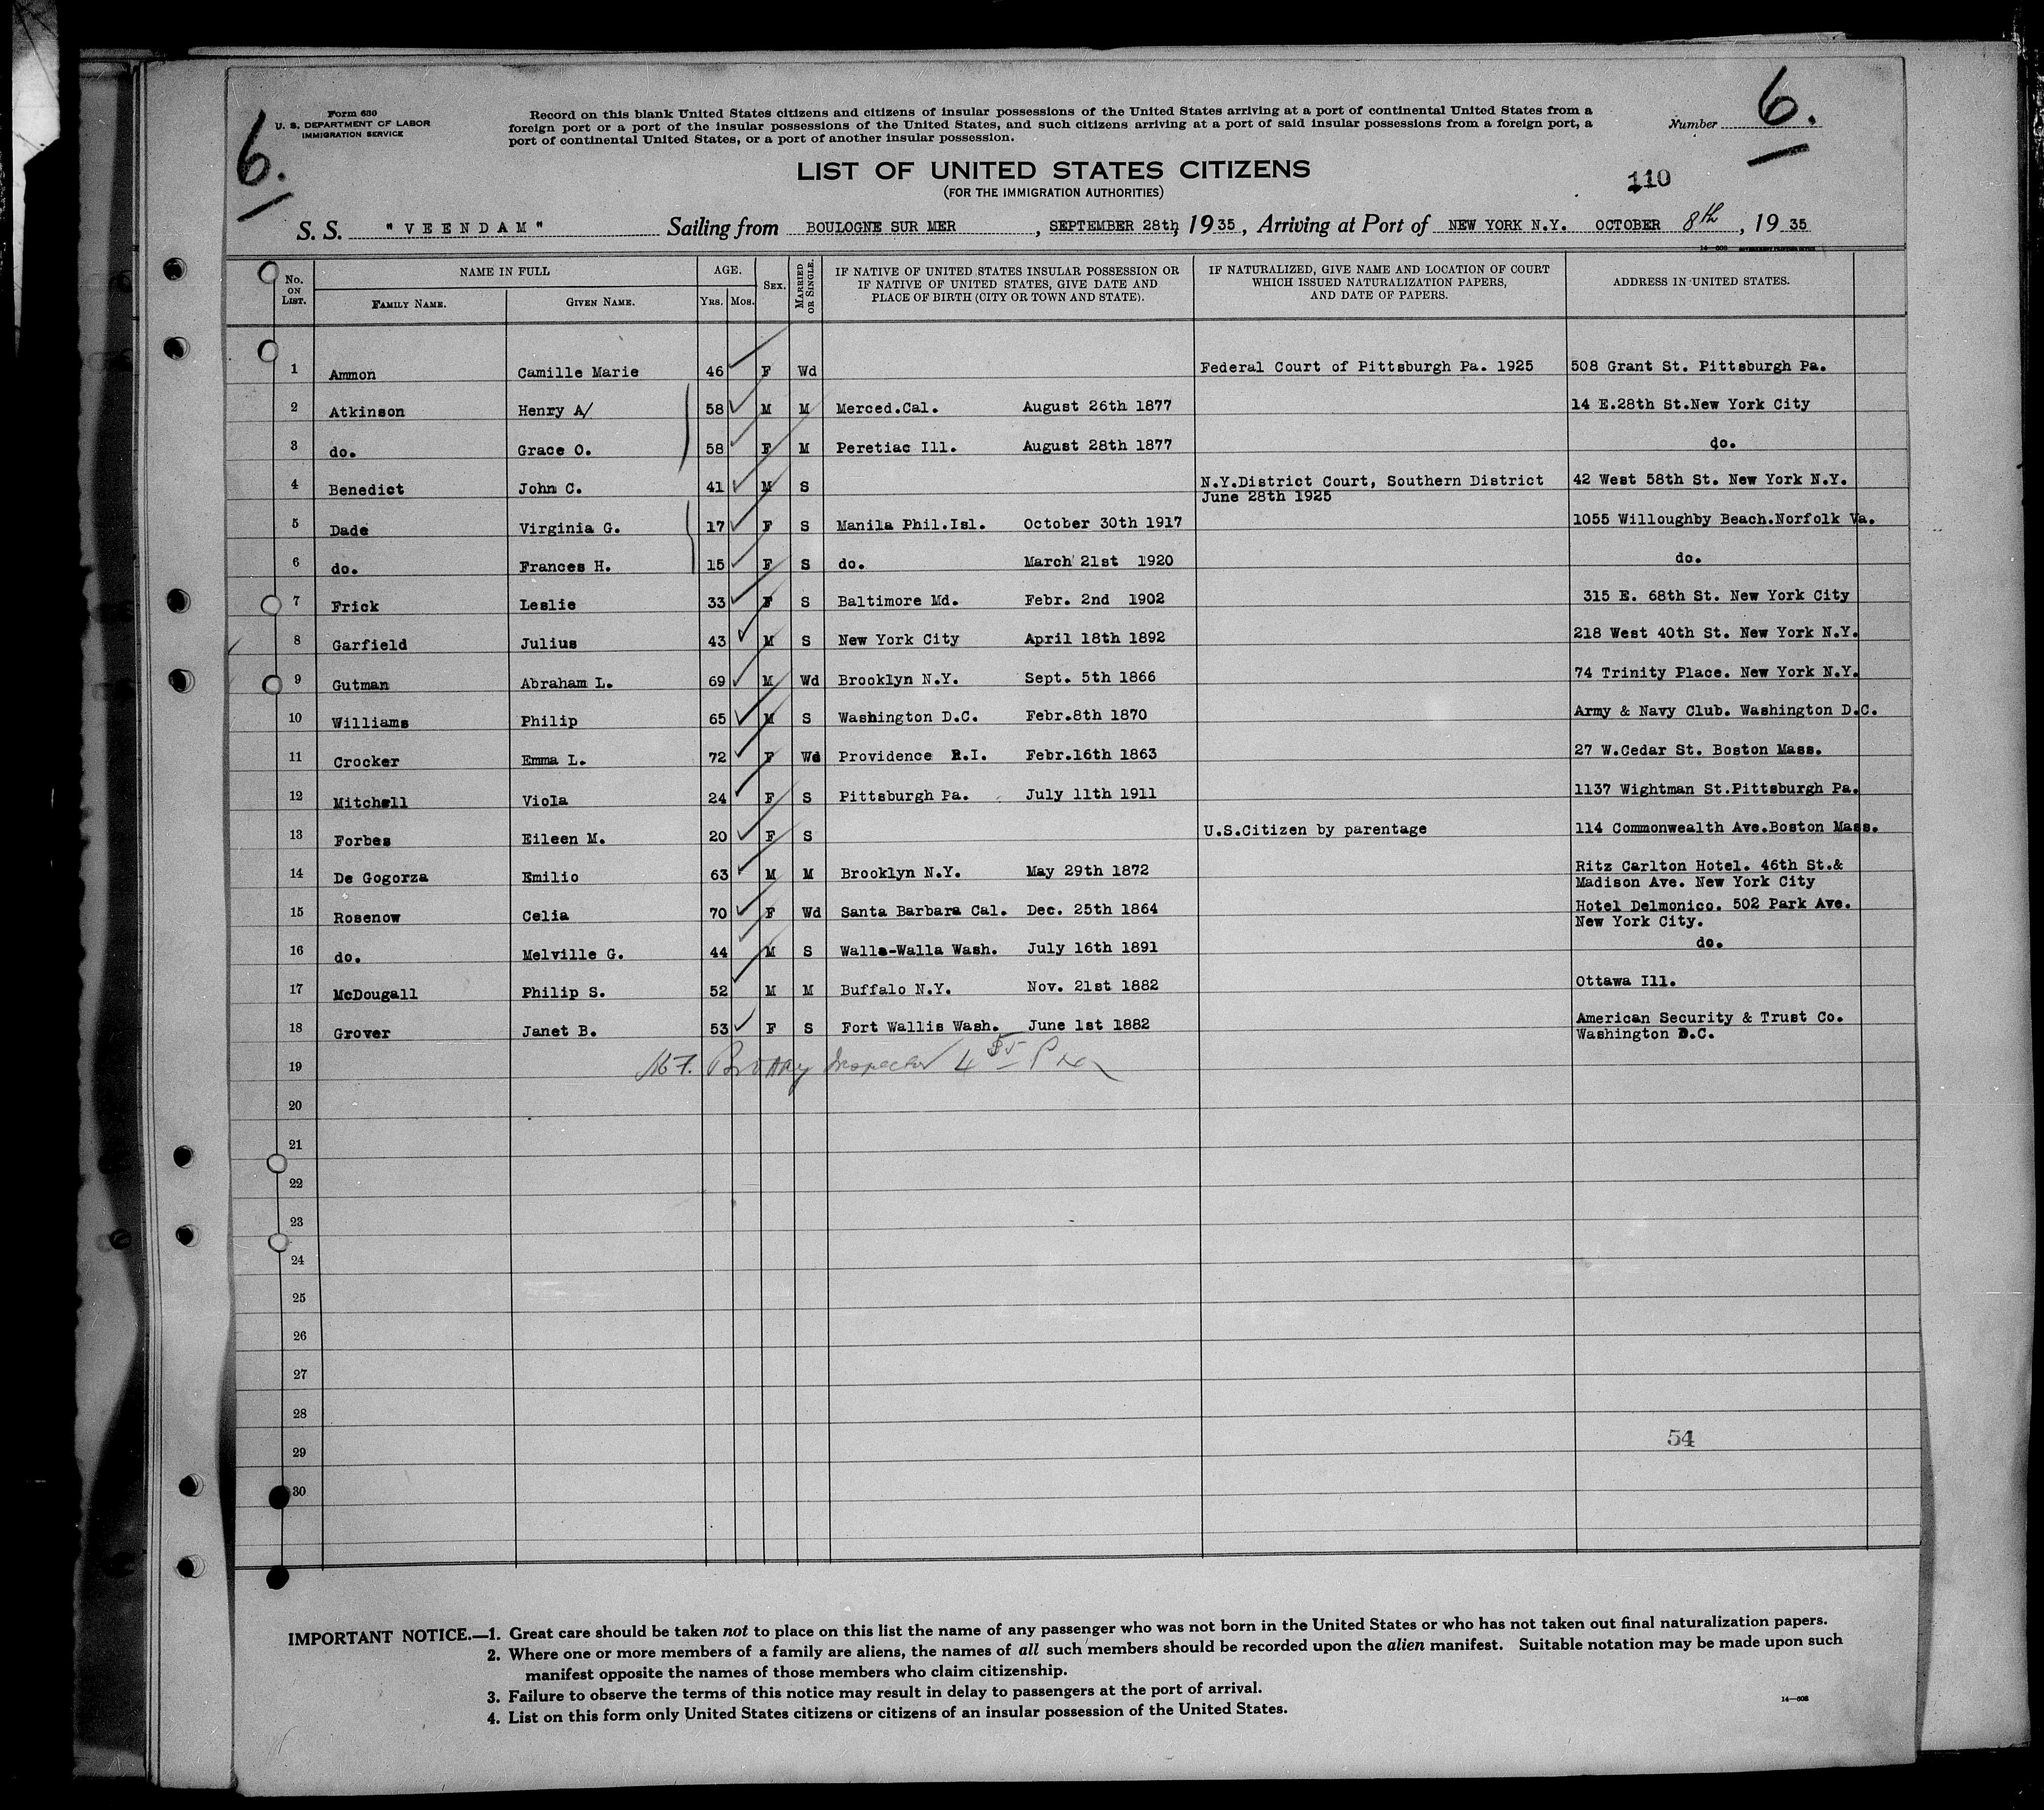 Form 630
U. S. DEPARTMENT OF LABOR
IMMIGRATION SERVICE
6.
Record on this blank United States citizens and citizens of insular possessions of the United States arriving at a port of continental United States from a
foreign port or a port of the insular possessions of the United States, and such citizens arriving at a port of said insular possessions from a foreign port, a
port of continental United States, or a port of another insular possession.
Number 6.
LIST OF UNITED STATES CITIZENS
(FOR THE IMMIGRATION AUTHORITIES)
110
S. S. "VEENDAM" Sailing from BOULOGNE SUR MER, SEPTEMBER 28th, 1935, Arriving at Port of NEW YORK N.Y. OCTOBER 8th, 1935
No. ON LIST. NAME IN FULL FAMILY NAME. GIVEN NAME. AGE. YRS. MOS. SEX. MARRIED OR SINGLE. IF NATIVE OF UNITED STATES INSULAR POSSESSION OR IF NATIVE OF UNITED STATES, GIVE DATE AND PLACE OF BIRTH (CITY OR TOWN AND STATE). IF NATURALIZED, GIVE NAME AND LOCATION OF COURT WHICH ISSUED NATURALIZATION PAPERS, AND DATE OF PAPERS. ADDRESS IN UNITED STATES.
1 Ammon Camille Marie 46 F Wd Federal Court of Pittsburgh Pa. 1925 508 Grant St. Pittsburgh Pa.
2 Atkinson Henry A/ 58 M M Merced.Cal. August 26th 1877 14 E.28th St.New York City
3 do. Grace O. 58 F M Peretiac Ill. August 28th 1877 do.
4 Benedict John C. 41 M S N.Y.District Court, Southern District 42 West 58th St. New York N.Y.
June 28th 1925
5 Dade Virginia G. 17 F S Manila Phil.Isl. October 30th 1917 1055 Willoughby Beach.Norfolk Va.
6 do. Frances H. 15 F S do. March 21st 1920 do.
7 Frick Leslie 33 F S Baltimore Md. Febr. 2nd 1902 315 E. 68th St. New York City
8 Garfield Julius 43 M S New York City April 18th 1892 218 West 40th St. New York N.Y.
9 Gutman Abraham L. 69 M Wd Brooklyn N.Y. Sept. 5th 1866 74 Trinity Place. New York N.Y.
10 Williams Philip 65 M S Washington D.C. Febr.8th 1870 Army & Navy Club. Washington D.C.
11 Crocker Emma L. 72 F Wd Providence R.I. Febr.16th 1863 27 W.Cedar St. Boston Mass.
12 Mitchell Viola 24 F S Pittsburgh Pa. July 11th 1911 1137 Wightman St.Pittsburgh Pa.
13 Forbes Eileen M. 20 F S U.S.Citizen by parentage 114 Commonwealth Ave.Boston Mass.
14 De Gogorza Emilio 63 M M Brooklyn N.Y. May 29th 1872 Ritz Carlton Hotel. 46th St.&
Madison Ave. New York City
15 Rosenow Celia 70 F Wd Santa Barbara Cal. Dec. 25th 1864 Hotel Delmonico. 502 Park Ave.
New York City.
16 do. Melville G. 44 M S Walla-Walla Wash. July 16th 1891 do.
17 McDougall Philip S. 52 M M Buffalo N.Y. Nov. 21st 1882 Ottawa Ill.
18 Grover Janet B. 53 F S Fort Wallis Wash. June 1st 1882 American Security & Trust Co.
Washington D.C.
19 Inspector
20
21
22
23
24
25
26
27
28
54
29
30
IMPORTANT NOTICE.—1. Great care should be taken not to place on this list the name of any passenger who was not born in the United States or who has not taken out final naturalization papers.
2. Where one or more members of a family are aliens, the names of all such members should be recorded upon the alien manifest. Suitable notation may be made upon such
manifest opposite the names of those members who claim citizenship.
3. Failure to observe the terms of this notice may result in delay to passengers at the port of arrival.
4. List on this form only United States citizens or citizens of an insular possession of the United States.
14—608